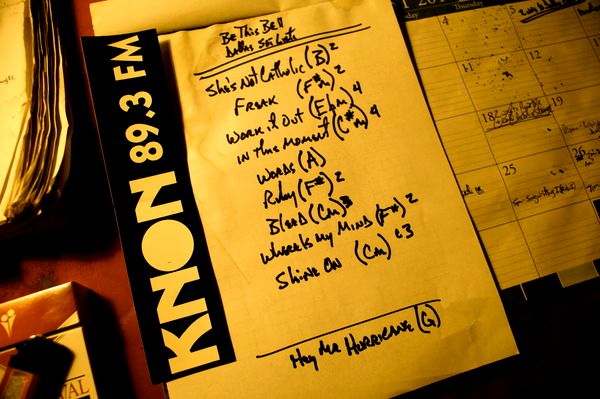 Be This Bell
Dallas Set List
She's Not Catholic (B) 2
Freak (F#m) 2
Work it Out (Ebm) 4
in the Moment (C#m) 4
Words (A)
Riley (F#) 2
Bleed (Cm) 3
Where's My Mind (F#) 2
Shine On (Cm) 3
Hey Mr Hurricane (G)
KNON 89.3 FM
4
5
11
12
18
19
25
26